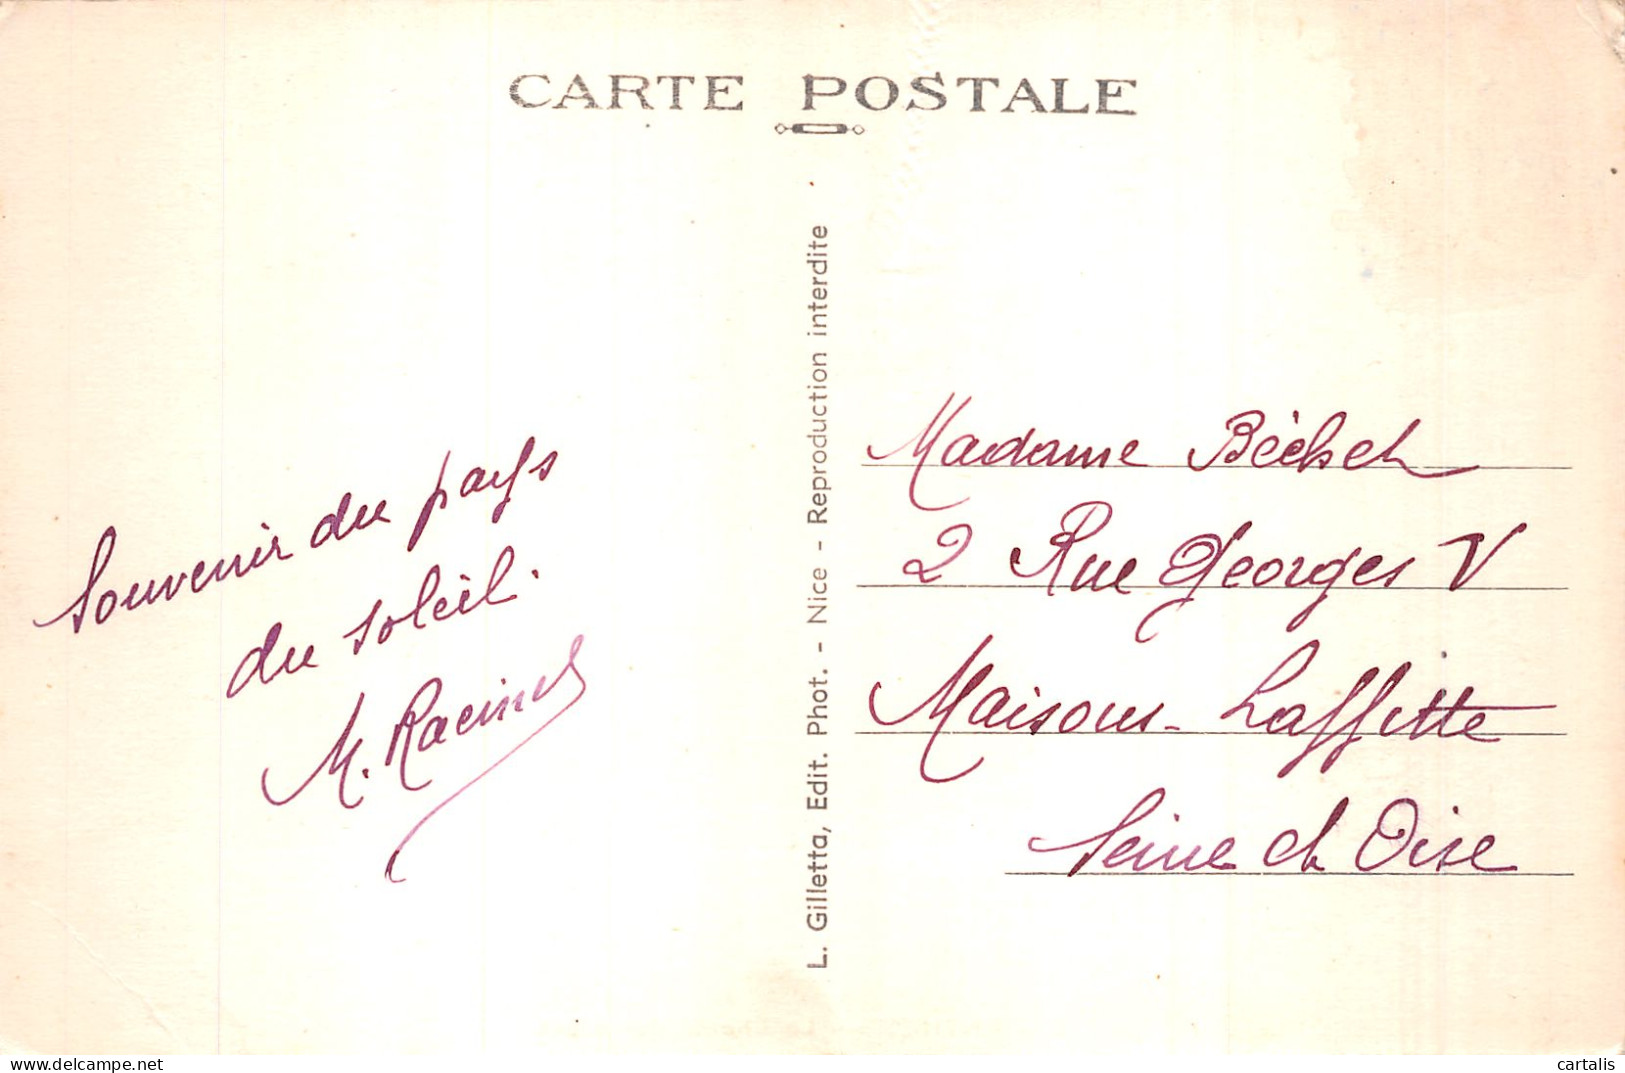 CARTE POSTALE
Souvenir du pays
du soleil.
M. Racine
L. Gilletta, Edit. Phot. - Nice - Reproduction interdite
Madame Béchet
2 Rue Georges V
Maisons-Laffitte
Seine et Oise
cartalis